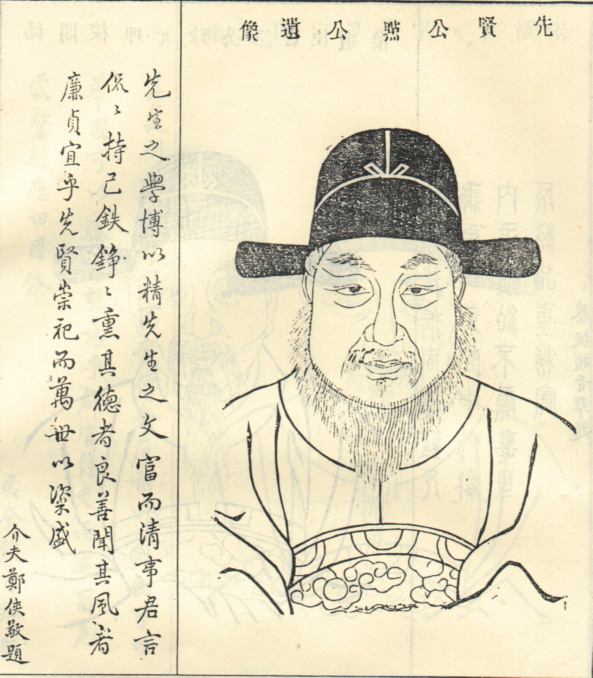 先賢公點公遺像
先生之學博以精先生之文富而清事君言
侃〻持己鉄錚〻熏其德者良善聞其風者
廉貞宜乎先賢崇祀而萬世以粢盛
介夫鄭俠敬題